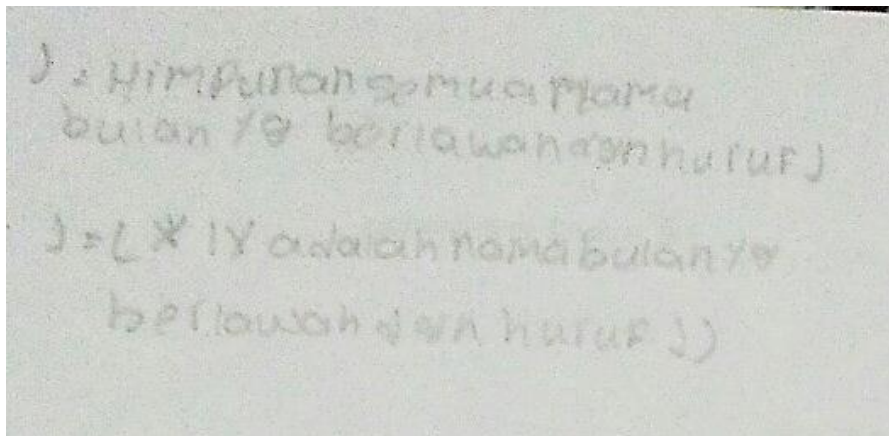 J = Himpunan semua nama
bulan yg berlawanan dgn huruf J
J = { X | X adalah nama bulan yg
berlawan dgn huruf J }